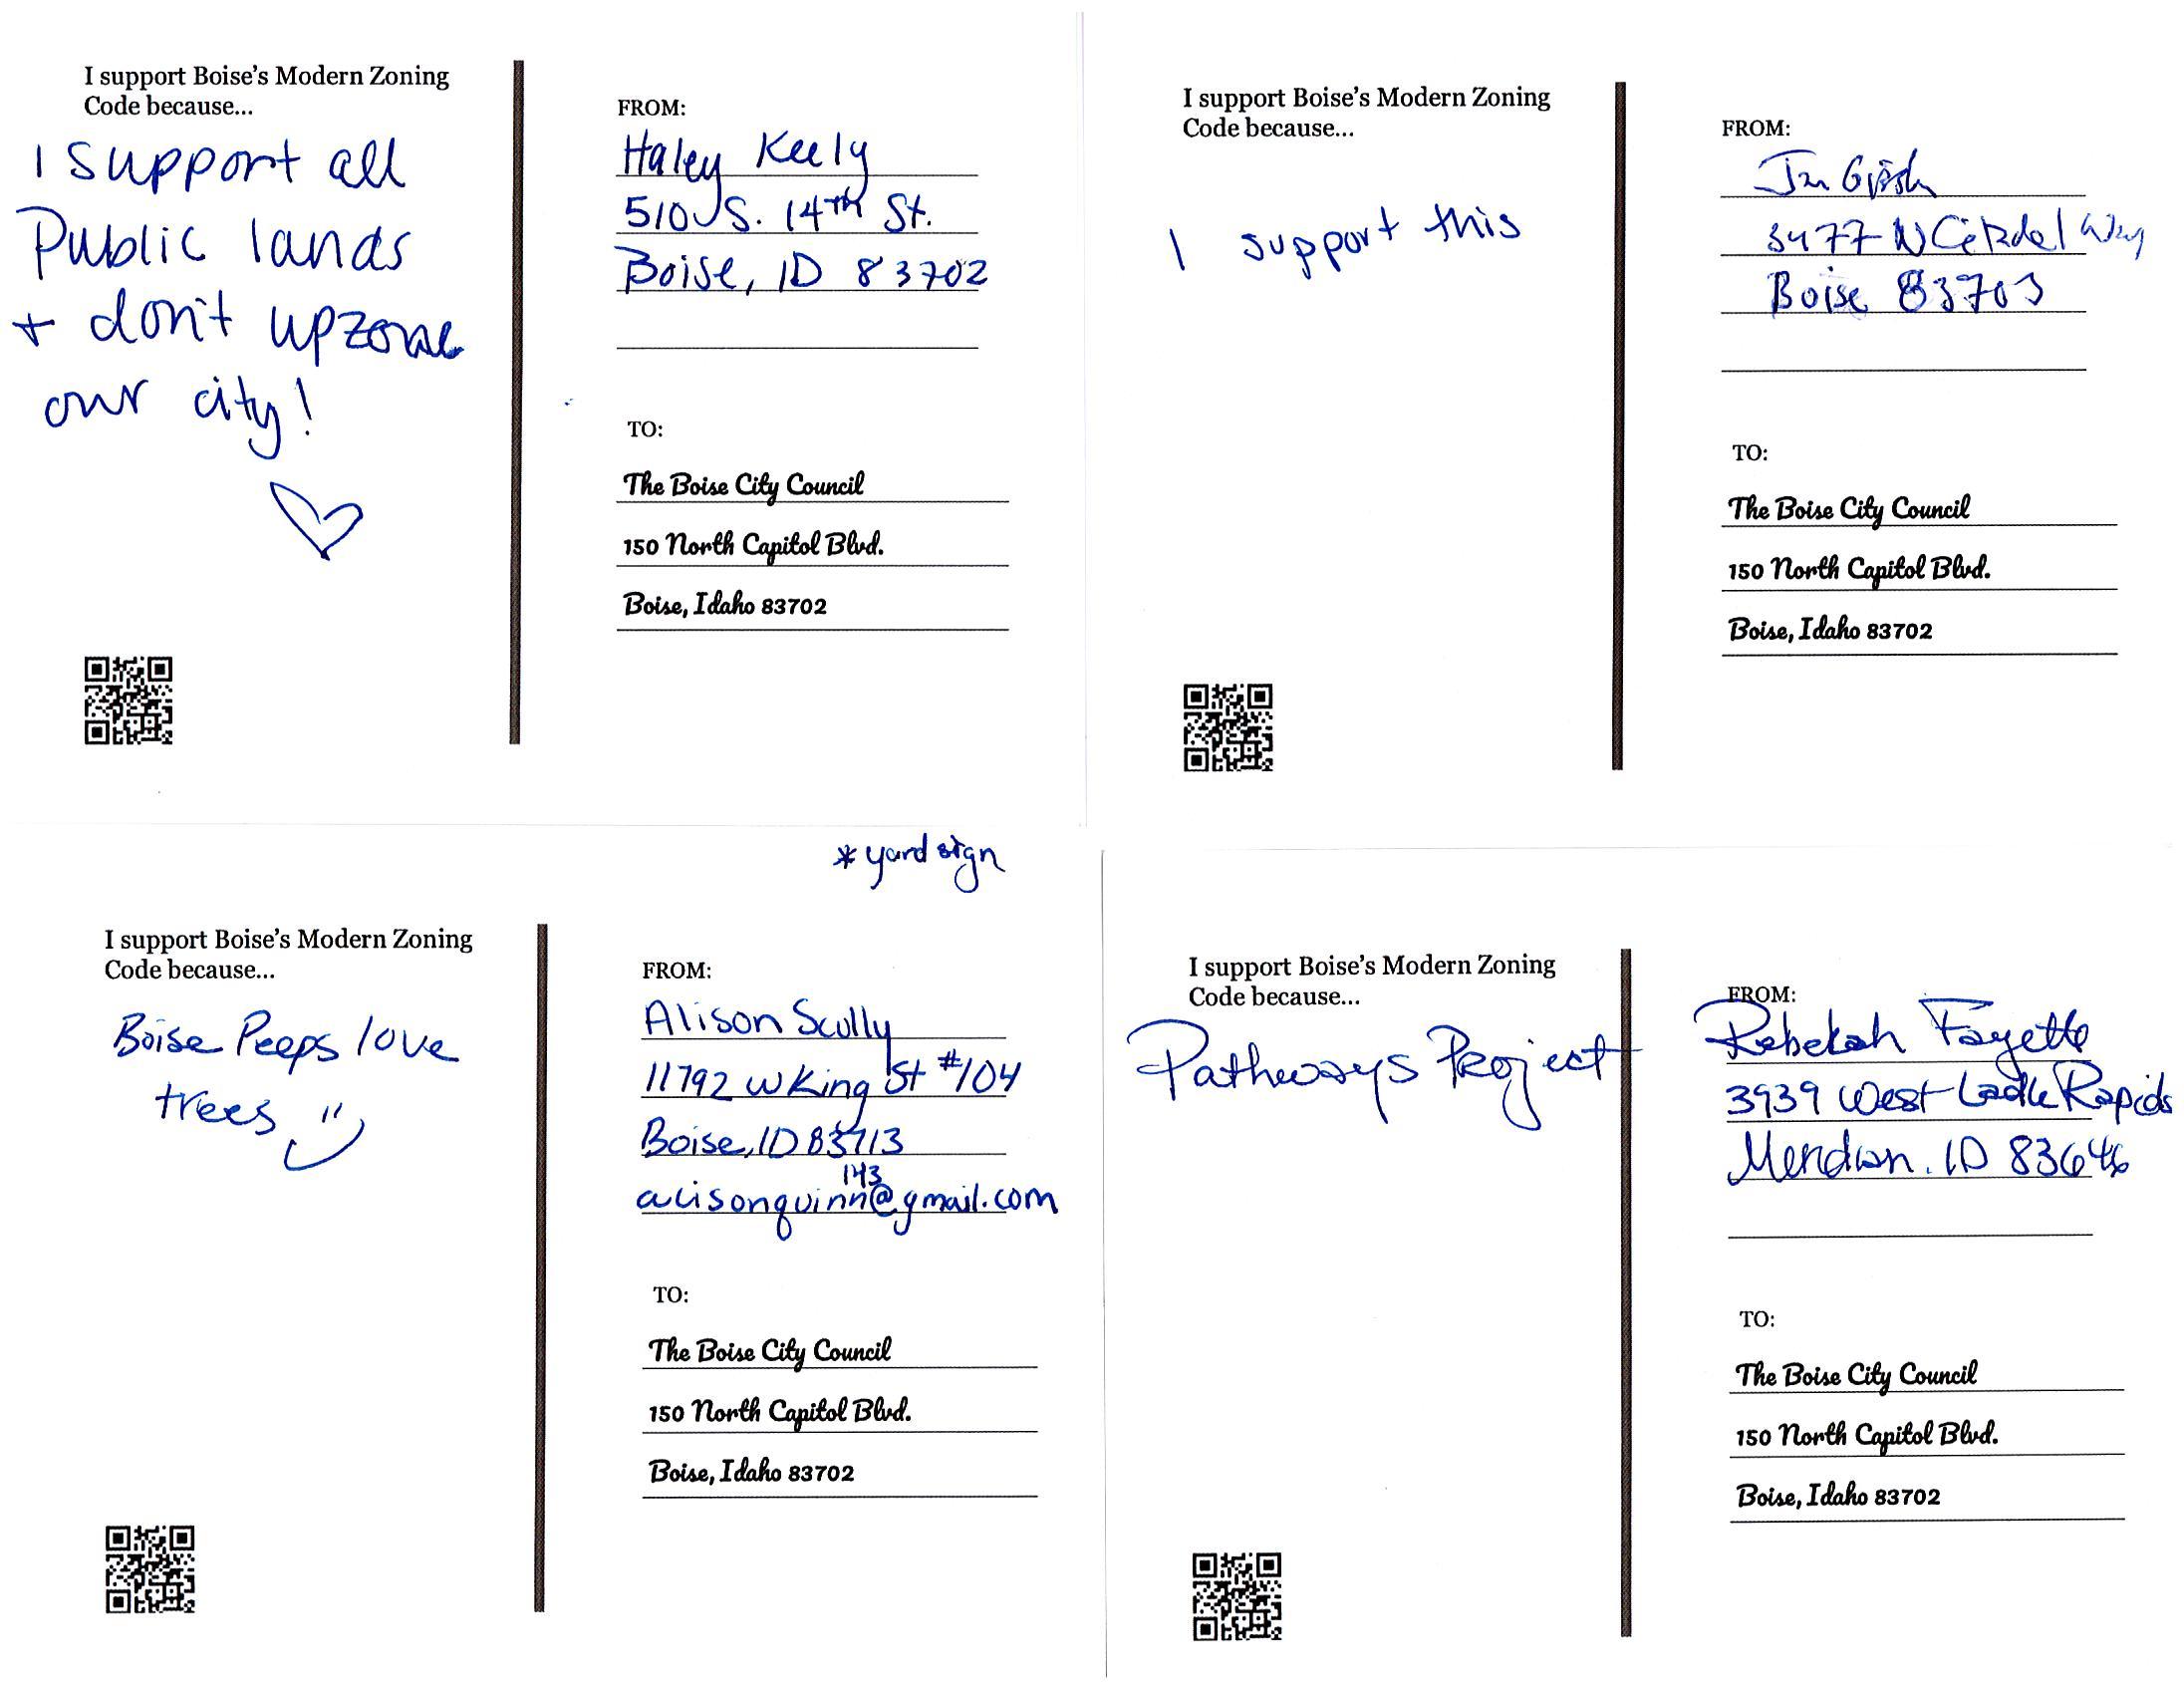 I support Boise's Modern Zoning
Code because...
I support all
Public lands
+ don't upzone
our city!
FROM:
Haley Keely
510 S. 14TH St.
Boise, ID 83702
TO:
The Boise City Council
150 North Capitol Blvd.
Boise, Idaho 83702
I support Boise's Modern Zoning
Code because...
I support this
FROM:
3477 N Way
Boise 83703
TO:
The Boise City Council
150 North Capitol Blvd.
Boise, Idaho 83702
*yard sign
I support Boise's Modern Zoning
Code because...
Boise Peeps love
trees
FROM:
Alison Scully
11792 W King St #104
Boise, ID 83713
alisonquinn143@gmail.com
TO:
The Boise City Council
150 North Capitol Blvd.
Boise, Idaho 83702
I support Boise's Modern Zoning
Code because...
Pathways Project
FROM:
Rebekah Fayette
3939 West Ladle Rapids
Meridian. ID 83646
TO:
The Boise City Council
150 North Capitol Blvd.
Boise, Idaho 83702